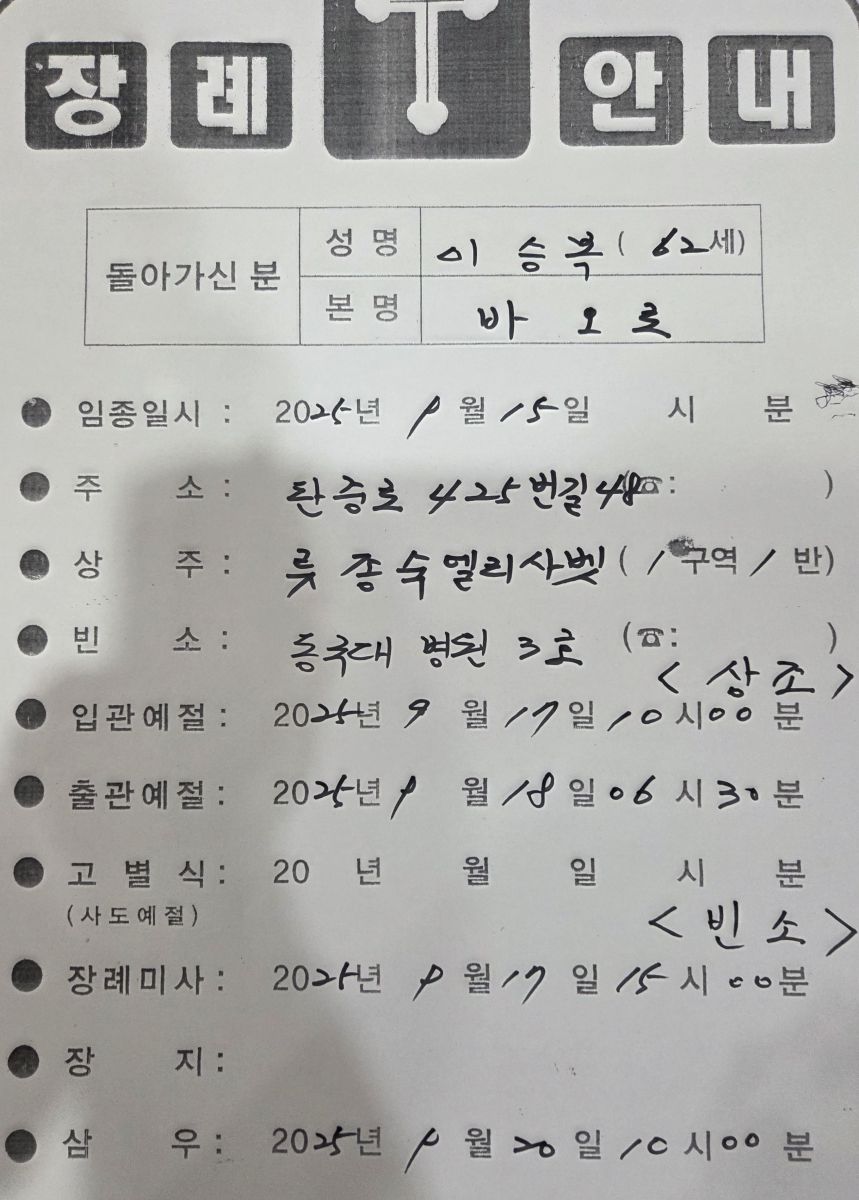 장례 안내
돌아가신 분 성명 이승복 (62세)
본명 바오로
임종일시 : 2025년 9월 15일 시 분
주 소 : 탄중로 425번길 48 (☎: )
상 주 : 류종숙엘리사벳 (1구역 1반)
빈 소 : 동국대 병원 3호 (☎: )
<상조>
입관예절 : 2025년 9월 17일 10시 00분
출관예절 : 2025년 9월 18일 06시 30분
고 별 식 : 20 년 월 일 시 분
(사도예절)
<빈소>
장례미사 : 2025년 9월 17일 15시 00분
장 지 :
삼 우 : 2025년 9월 20일 10시 00분